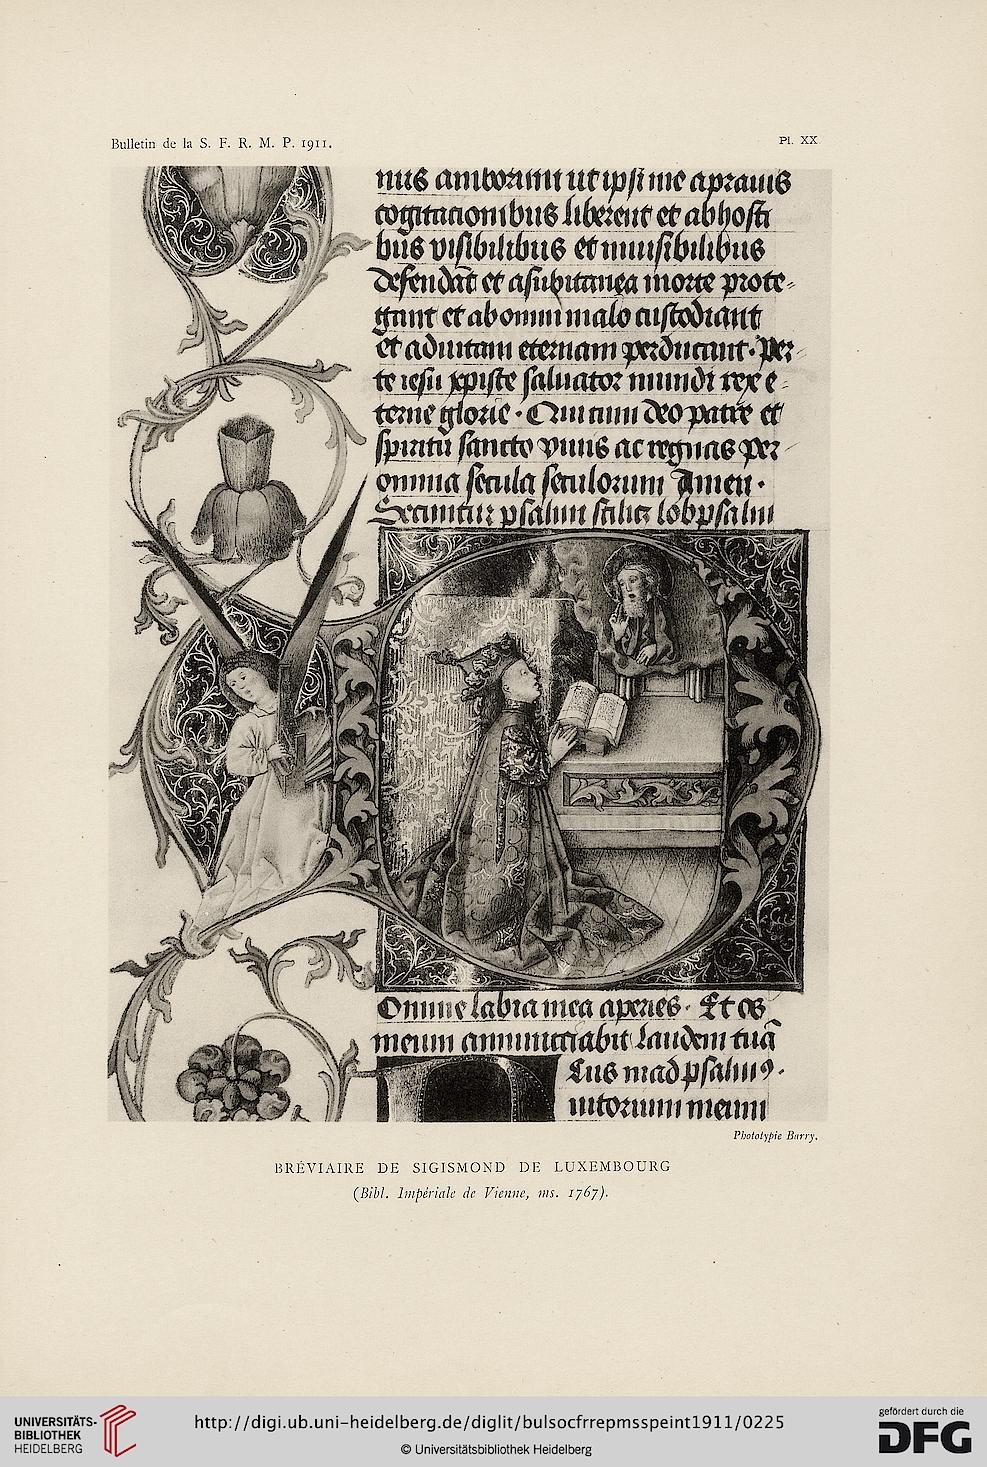 Bulletin de la S. F. R. M. P. 1911.
Pl. XX
cogitacionibus liberent et ab hosti
bus visibilibus et inuisibilibus
defendāt et a subitanea morte prote-
gant et ab omni malo custodiant
et ad uitam eternam perducant. Per
te iesu xpiste saluator mundi rex e-
terne glorie. Qui cum deo patre et
spiritu sancto viuis ac regnas per
omnia secula seculorum Amen.
Omine labia mea aperies. Et os
meum annunctiabit laudem tuā
mad
meum
Phototypie Barry.
BRÉVIAIRE DE SIGISMOND DE LUXEMBOURG
(Bibl. Impériale de Vienne, ms. 1767).
UNIVERSITÄTS-
BIBLIOTHEK
HEIDELBERG
http://digi.ub.uni-heidelberg.de/diglit/bulsocfrrepmsspeint1911/0225
© Universitätsbibliothek Heidelberg
gefördert durch die
DFG